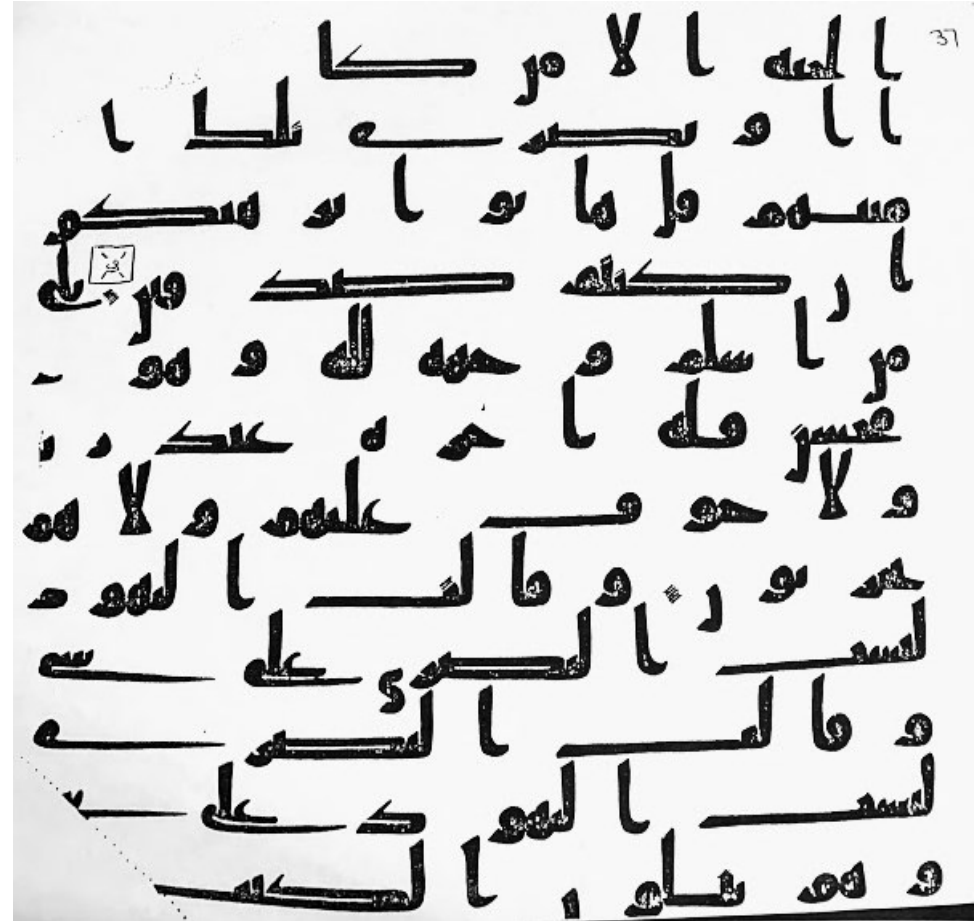 37
الجنه الا من كا
ا او نصرى تلك ا
منيهم قل هاتوا برهنكم
ان كنتم صدقين بلى
من اسلم وجهه لله وهو م
حسن فله اجره عند ر
ولا خوف عليهم ولا هم
يحزنون وقالت اليهود
ليست النصرى على شى
وقالت النصرى
ليست اليهود على شى
وهم يتلون الكتب